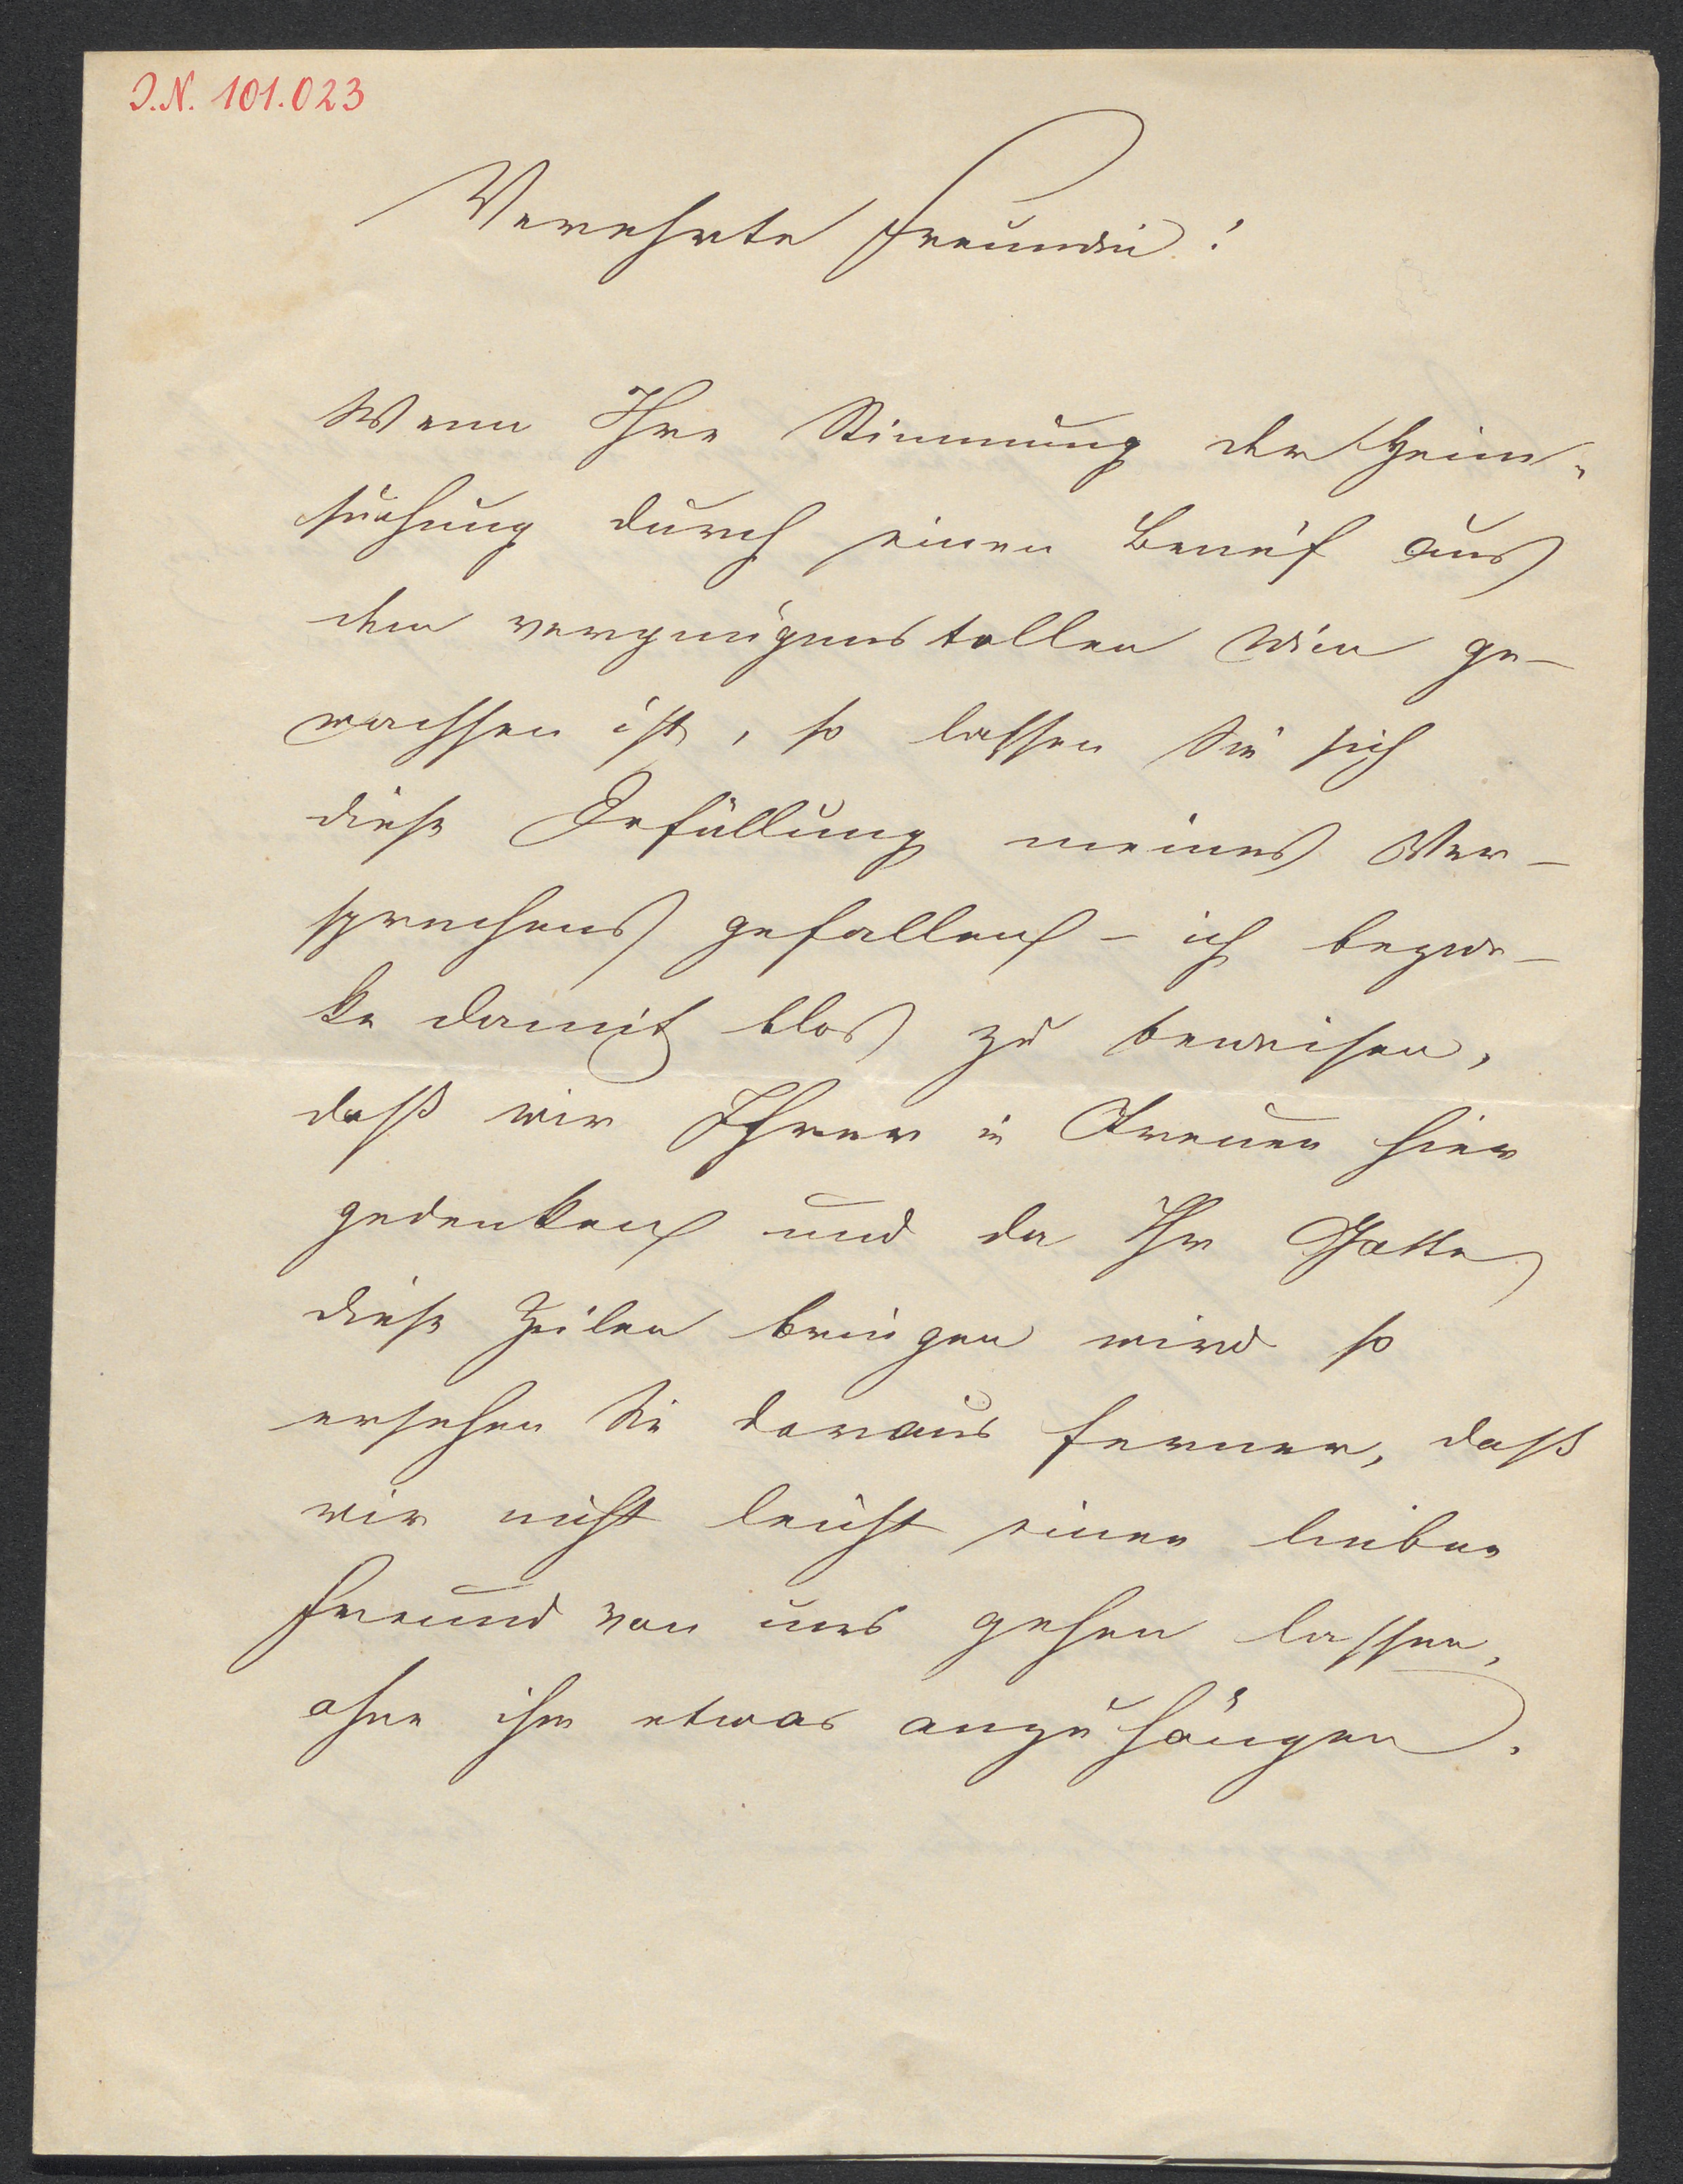 I.N. 101.023
Verehrte Freundin!
Wenn Ihre Stimmung der Heim-
suchung durch einen Beruf aus
dem vergnügenstollen Wien ge-
wachsen ist, so lassen Sie sich
diese Erfüllung meines Ver-
sprechens gefallen - ich bezwe-
ke damit blos zu beweisen,
daß wir Ihrer in Treuen hier
gedenken und da Ihr Gatte
diese Zeilen bringen wird so
ersehen Sie daraus ferner, daß
wir nicht leicht einen lieben
Freund von uns gehen lassen,
ohne ihm etwas anzuhängen.